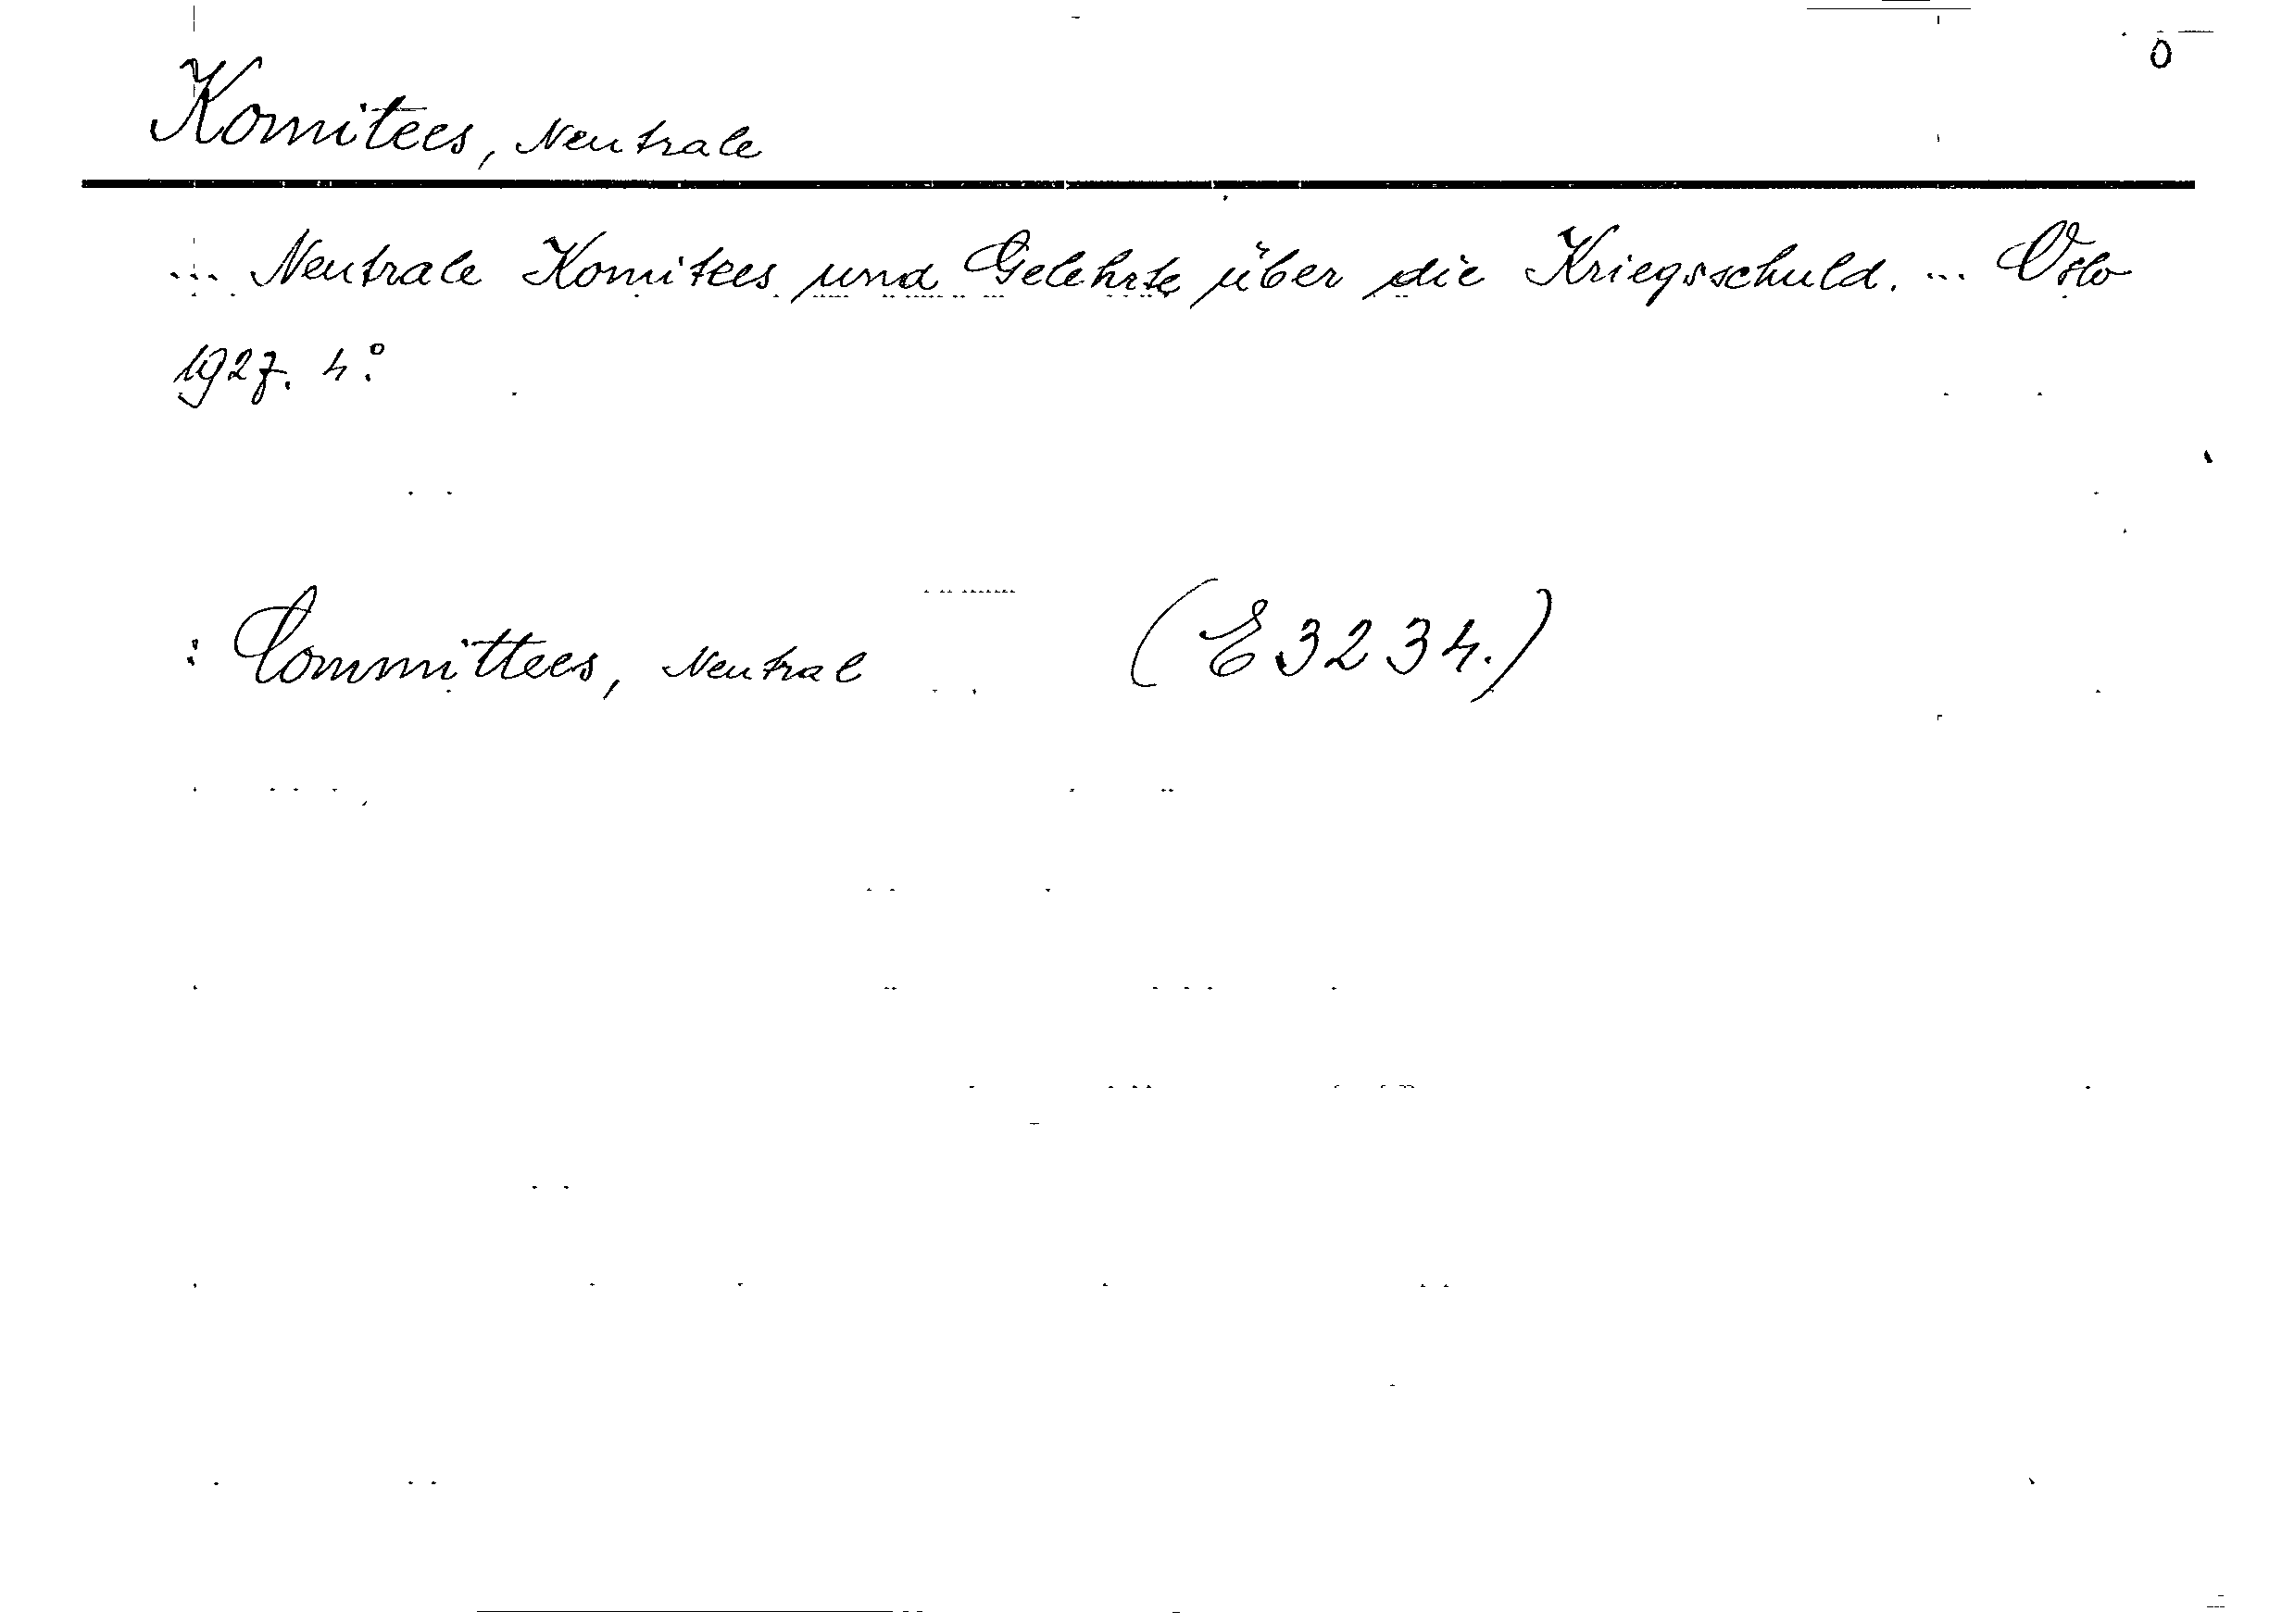 0
Komitees, Neutrale
... Neutrale Komitees und Gelehrte über die Kriegsschuld. ... Oslo
1927. 4°.
: Committees, Neutral (E 3234.)